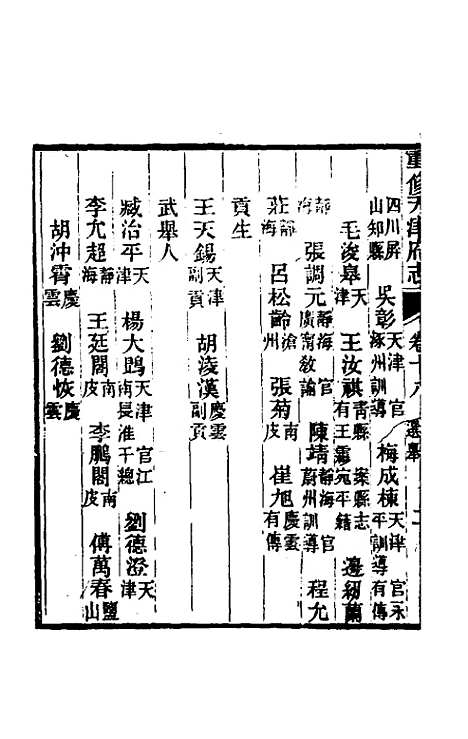 重修天津府志 卷十八 選舉 二
四川屏山知縣 吳彰天津官涿州訓導 梅成棟天津官永平訓導有傳
毛浚皋天津 王汝祺青縣案縣志有王霱宛平籍 邊紉蘭
靜海 張調元靜海官廣南敎諭 陳靖靜海官蔚州訓導 程允
莊靜海 呂松齡滄州 張菊南皮 崔旭慶雲有傳
貢生
王天錫天津副貢 胡淩漢慶雲副貢
武舉人
臧治平天津 楊大天津官江南長淮千總 劉德澄天津
李允超靜海 王廷閣南皮 李鵬閣南皮 傅萬春鹽山
胡沖霄慶雲 劉德恢慶雲